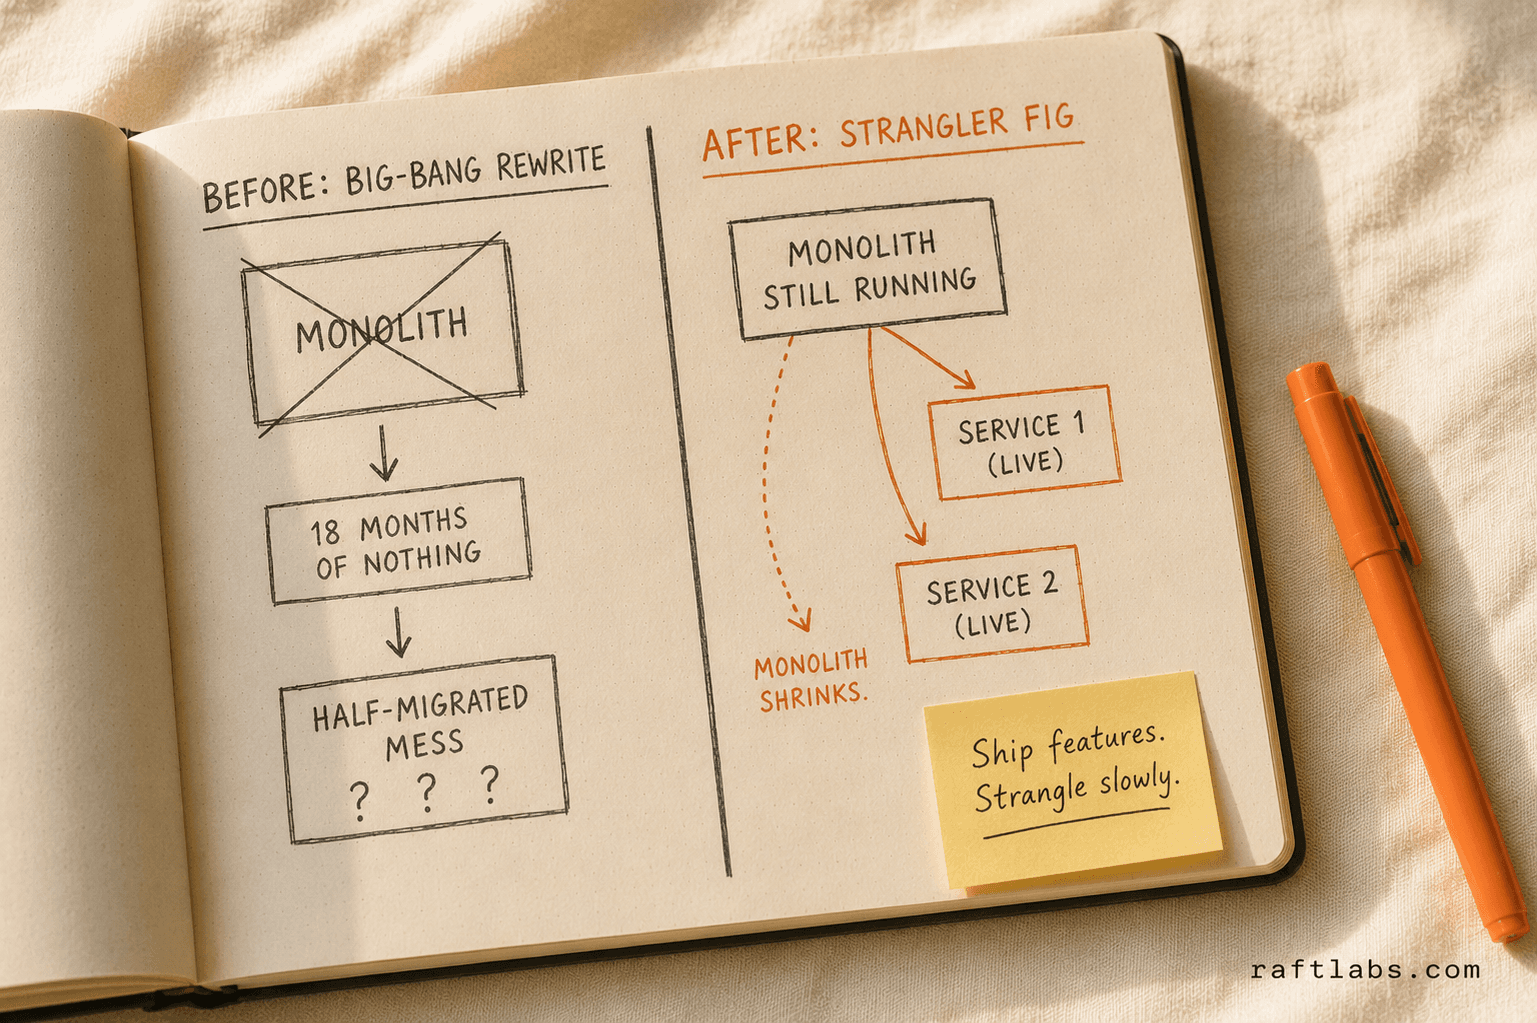 BEFORE: BIG-BANG REWRITE
MONOLITH
18 MONTHS
OF NOTHING
HALF-MIGRATED
MESS
? ? ?
AFTER: STRANGLER FIG
MONOLITH
STILL RUNNING
SERVICE 1
(LIVE)
SERVICE 2
(LIVE)
MONOLITH
SHRINKS.
Ship features.
Strangle slowly.
raftlabs.com